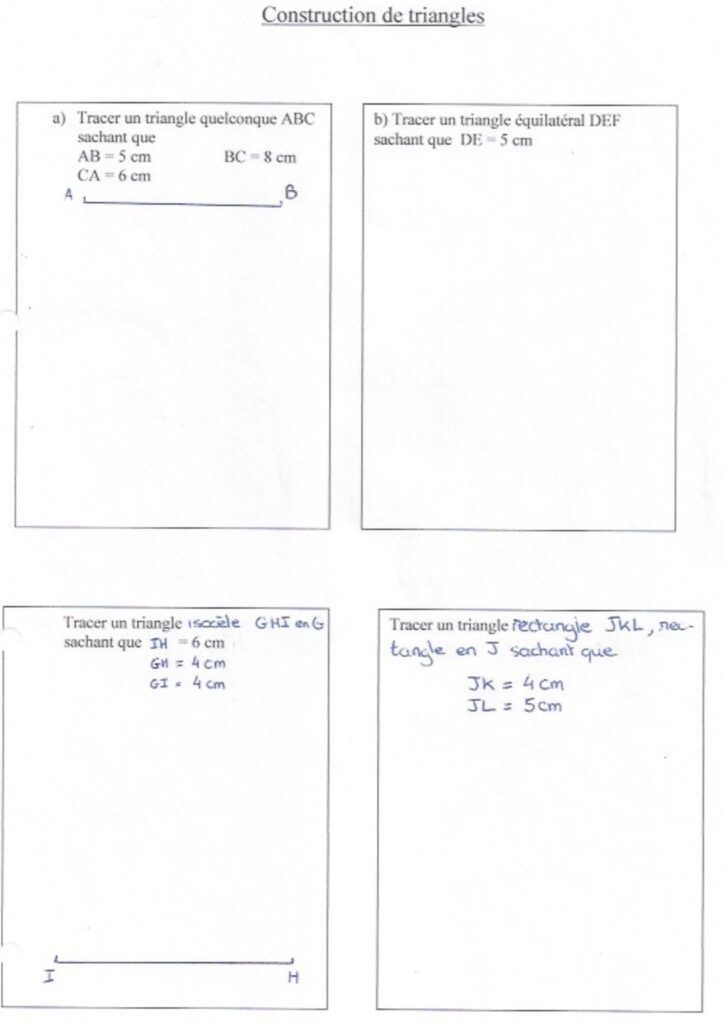 Construction de triangles
a) Tracer un triangle quelconque ABC
sachant que
AB = 5 cm BC = 8 cm
CA = 6 cm
A B
b) Tracer un triangle équilatéral DEF
sachant que DE = 5 cm
Tracer un triangle isocèle GHI en G
sachant que IH = 6 cm
GH = 4 cm
GI = 4 cm
I H
Tracer un triangle rectangle JKL, rec-
tangle en J sachant que
JK = 4 cm
JL = 5 cm